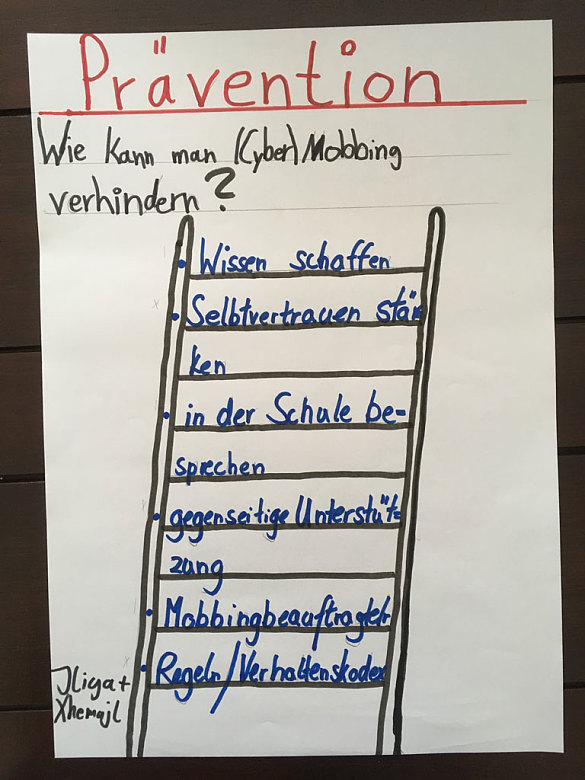 Prävention
Wie kann man (Cyber)Mobbing
verhindern?
• Wissen schaffen
• Selbtvertrauen stär
ken
• in der Schule be-
sprechen
• gegenseitige Unterstüt=
zung
• Mobbingbeauftragter
• Regeln/Verhaltenskodex
Jliya +
Xhemajl